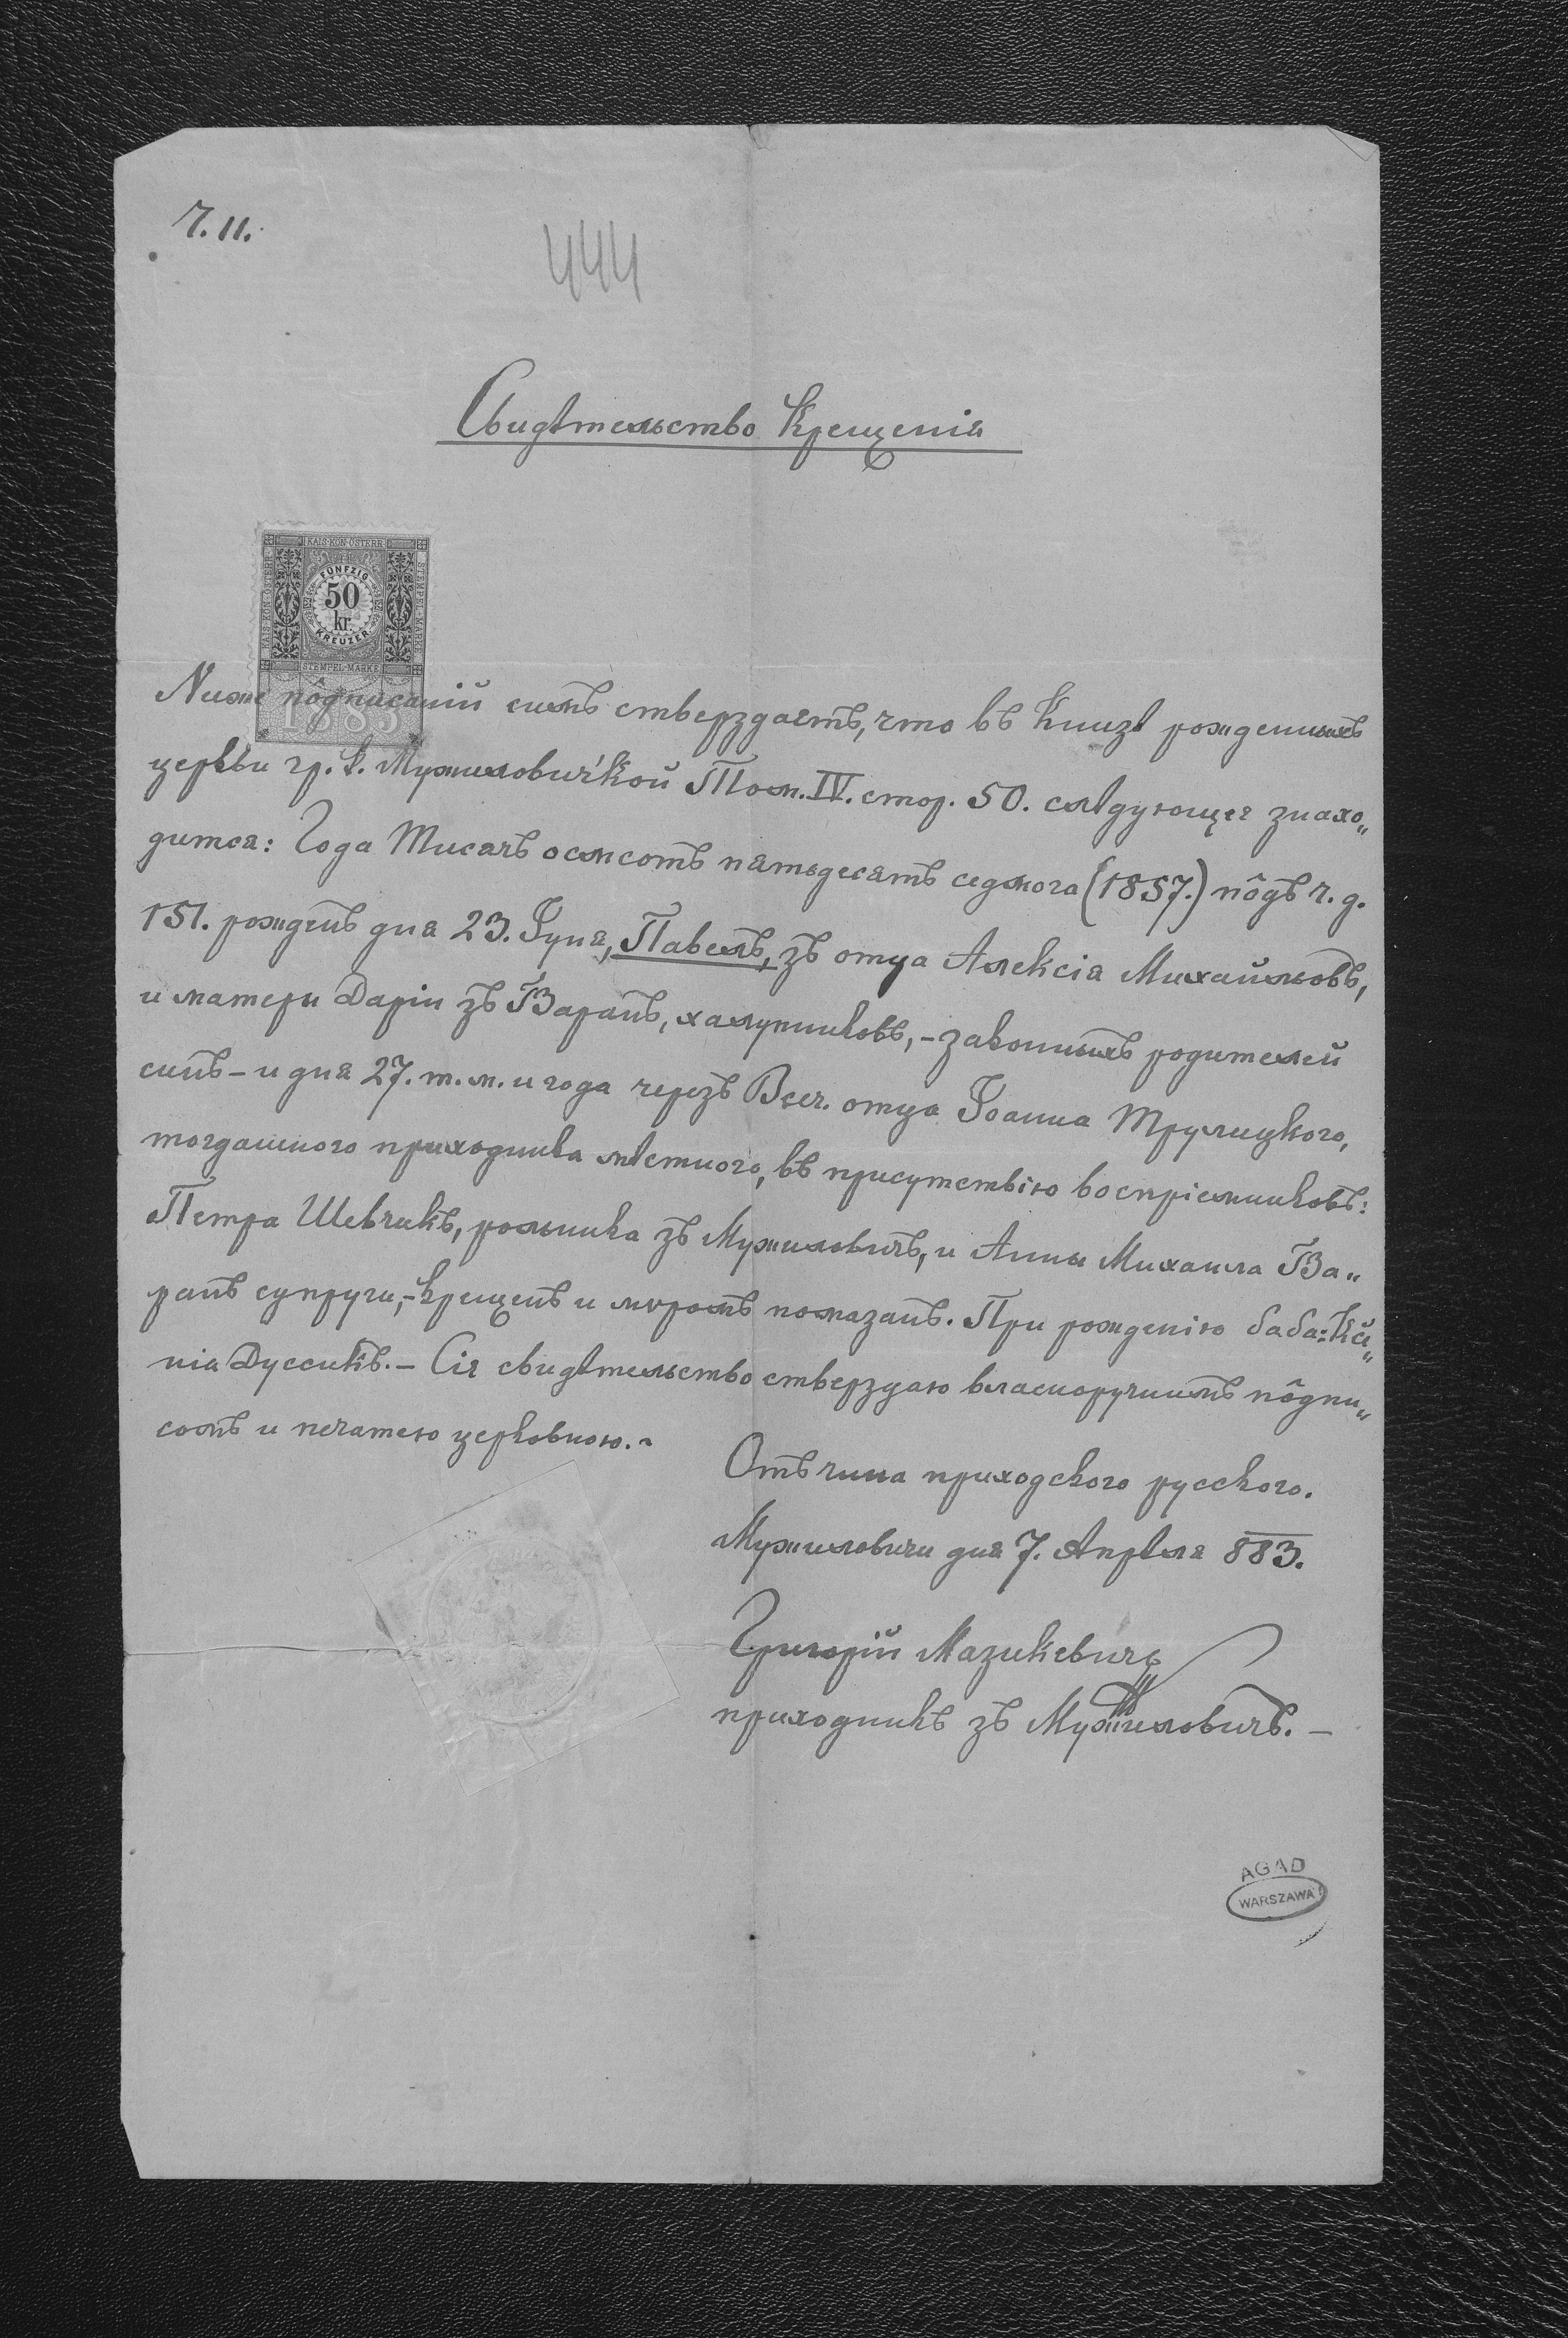 Ч. 11.
444
Свидѣтельство Крещенія
KAIS·KÖN·ÖSTERR·
STEMPEL-MARKE
FÜNFZIG
50
kr.
KREUZER
STEMPEL-MARKE
1883
Ниже по̂дписаній симъ стверздаетъ, что въ Книзѣ рожденныхъ
церкви гр. к. Мужиловичкой Том. IV. стор. 50. слѣдующее знахо„
дится: Года Тисячъ осмсотъ пятьдесятъ седмого (1857.) по̂дъ ч. д.
151. рожденъ дня 23. Іуня, Павелъ, зъ отца Алексія Михайльовъ,
и матери Даріи зъ Варанъ, халупниковъ, - законныхъ родителей
синъ - и дня 27. т. м. и года черезъ Всеч. отца Іоанна Трулицкого,
тогдашного приходника мѣстного, въ присутствію воспріемниковъ:
Петра Шевчикъ, рольника зъ Мужиловичъ, и Анны Михаила Ва„
ранъ супруги, - крещенъ и мѵромъ помазанъ. При рожденію баба: Ксе„
нія Дуссикъ. - Сіе свидѣтельство стверздаю власноручнимъ по̂дпи„
сомъ и печатею церковною. -
Отъ чина приходского русского.
Мужиловичи дня 7. Апрѣля 883.
Григорій Мазикевичъ
приходникъ зъ Мужиловичъ. -
AGAD
WARSZAWA